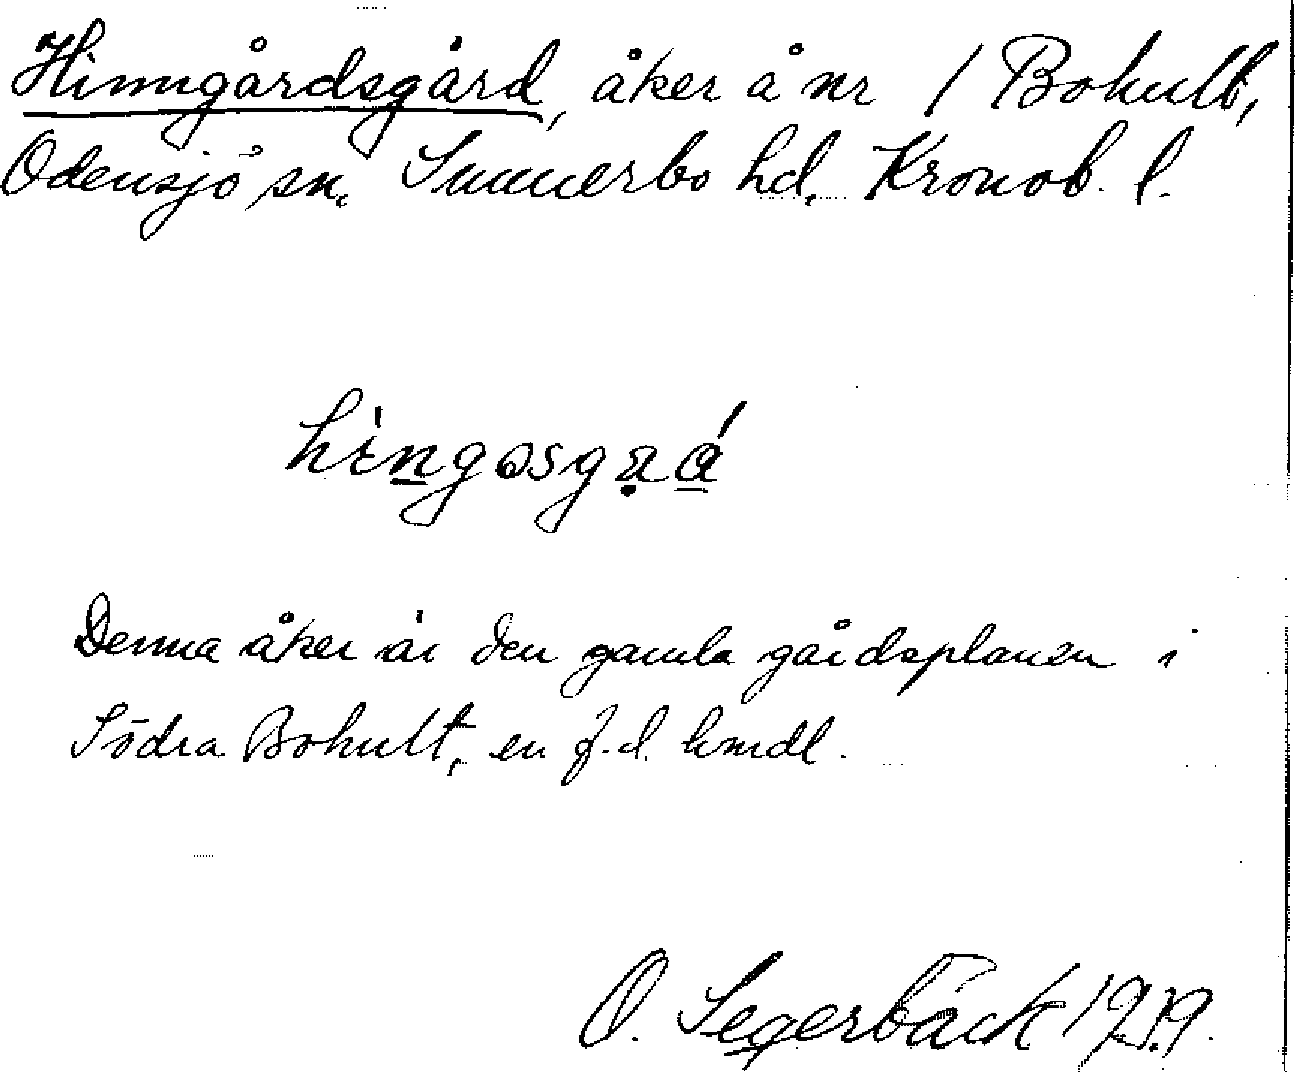 Hinngårdsgård, åker å nr 1 Bohult,
Odensjö sn. Sunnerbo hd. Kronob. l.
Denna åker är den gamla gårdsplanen i
Södra Bohult, en f.d. hmdl.
O. Segerbäck 1919.